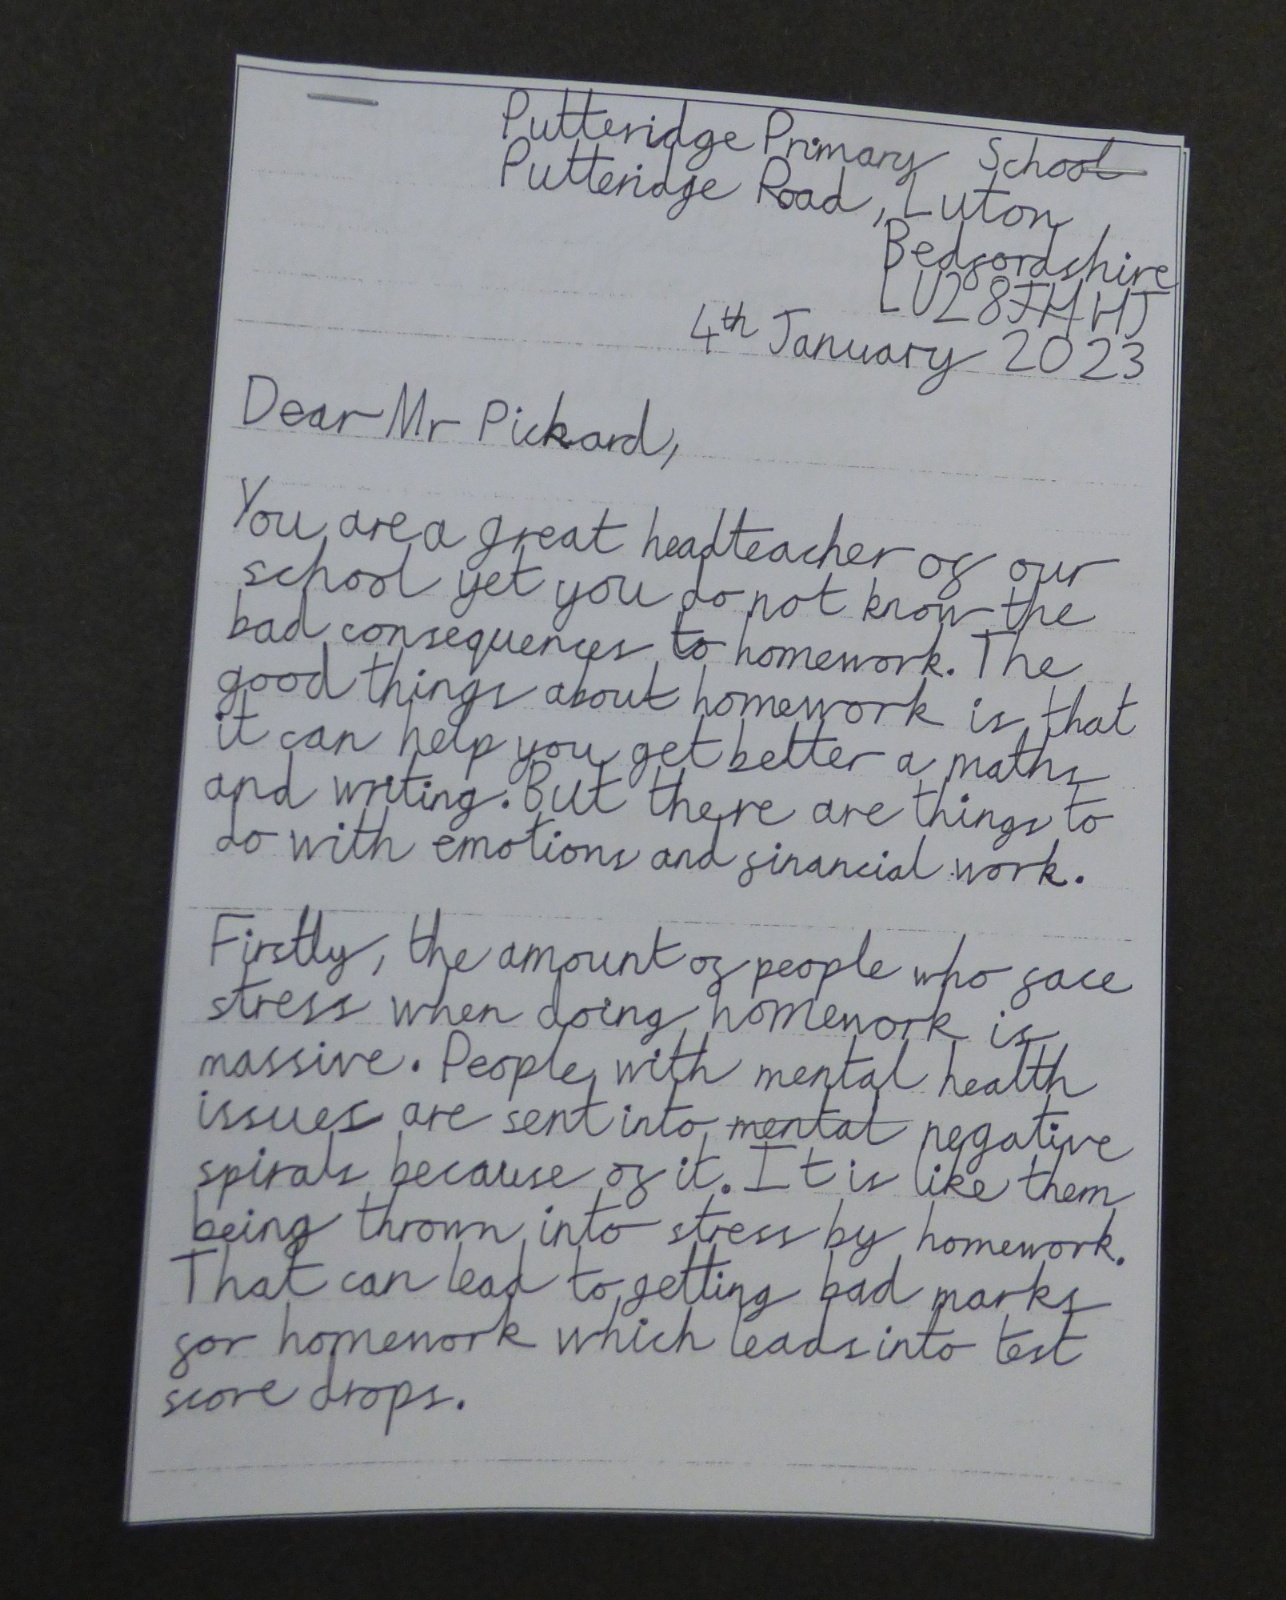 Putteridge Primary School
Putteridge Road, Luton
Bedfordshire
LU2 8JH HJ
4th January 2023
Dear Mr Pickard,
You are a great headteacher of our
school yet you do not know the
bad consequences to homework. The
good things about homework is that
it can help you get better a maths
and writing. But there are things to
do with emotions and financial work.
Firstly, the amount of people who face
stress when doing homework is
massive. People with mental health
issues are sent into mental negative
spirals because of it. It is like them
being thrown into stress by homework.
That can lead to getting bad marks
for homework which leads into test
score drops.